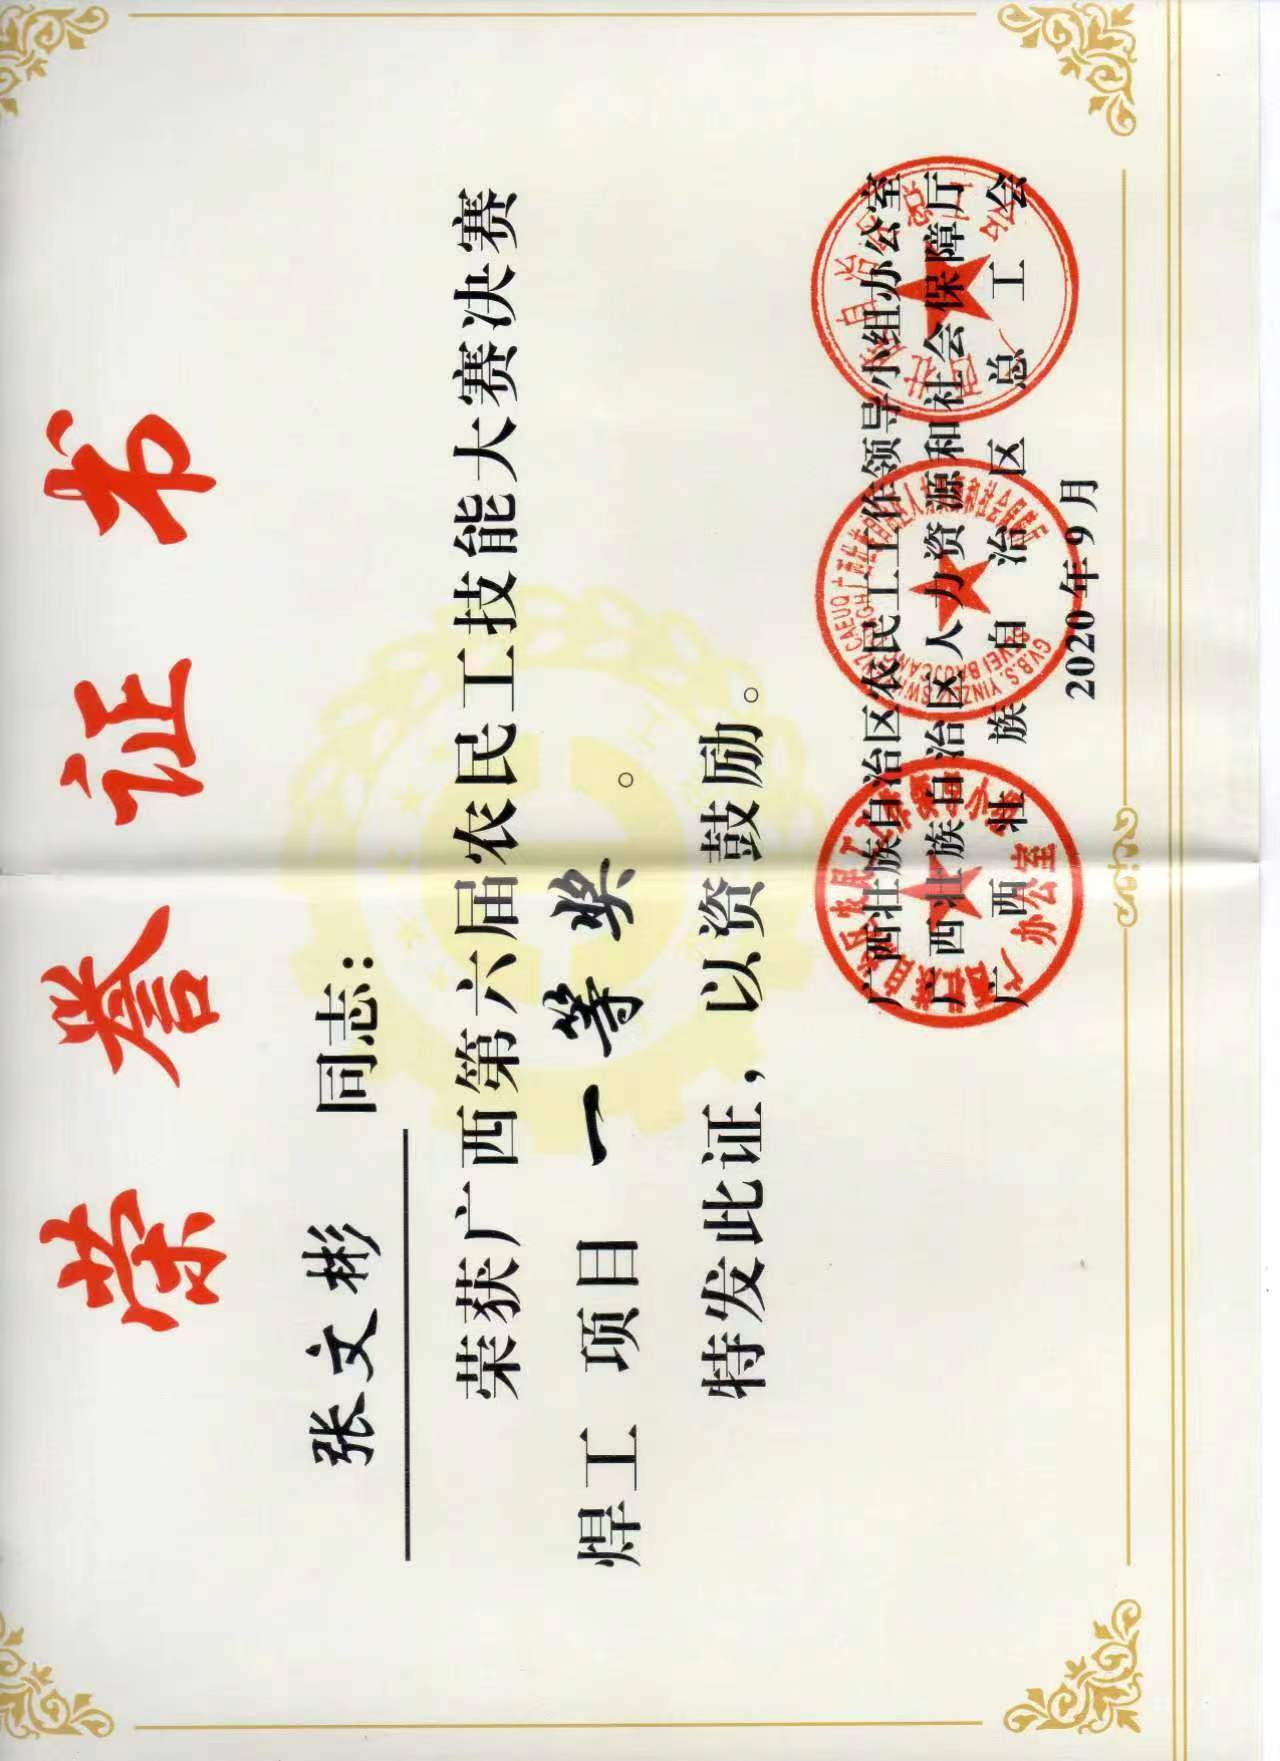 荣誉证书
张文彬 同志:
荣获广西第六届农民工技能大赛决赛
焊工 项目 一等奖 。
特发此证，以资鼓励。
广西壮族自治区农民工工作领导小组办公室
广西壮族自治区人力资源和社会保障厅
广西壮族自治区总工会
2020年9月